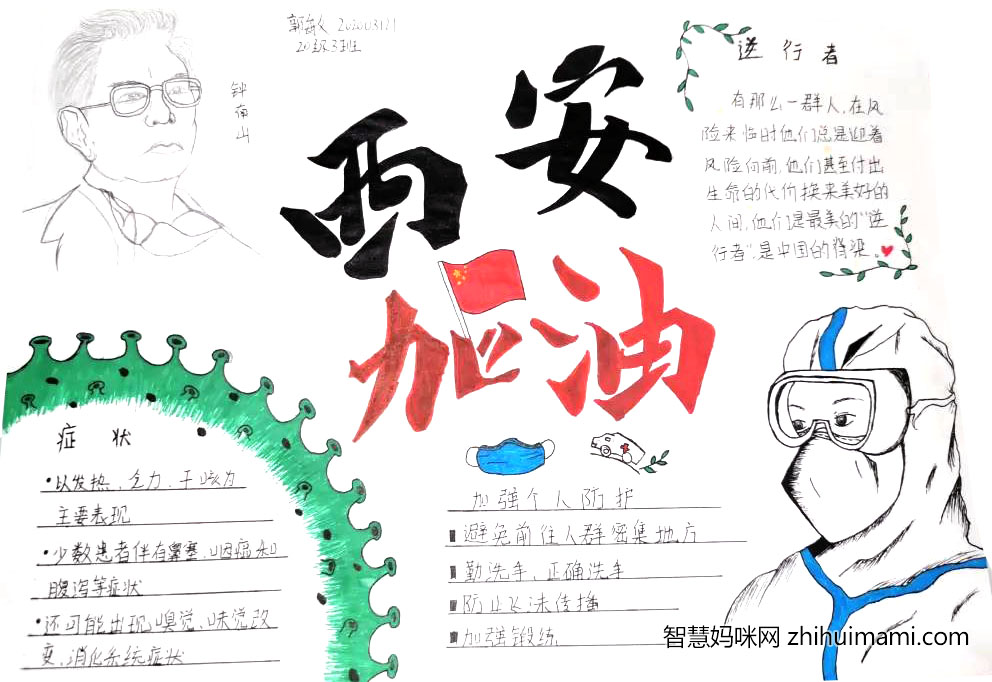 钟南山
郭敏 20200317
20级3班
西安
加油
逆行者
有那么一群人,在风
险来临时他们总是迎着
风险向前,他们甚至付出
生命的代价换来美好的
人间,他们是最美的“逆
行者”,是中国的脊梁。
症状
•以发热、乏力、干咳为
主要表现
•少数患者伴有鼻塞、咽痛和
腹泻等症状
•还可能出现嗅觉、味觉改
变,消化系统症状
加强个人防护
避免前往人群密集地方
勤洗手、正确洗手
防止飞沫传播
加强锻炼
智慧妈咪网 zhihuimami.com